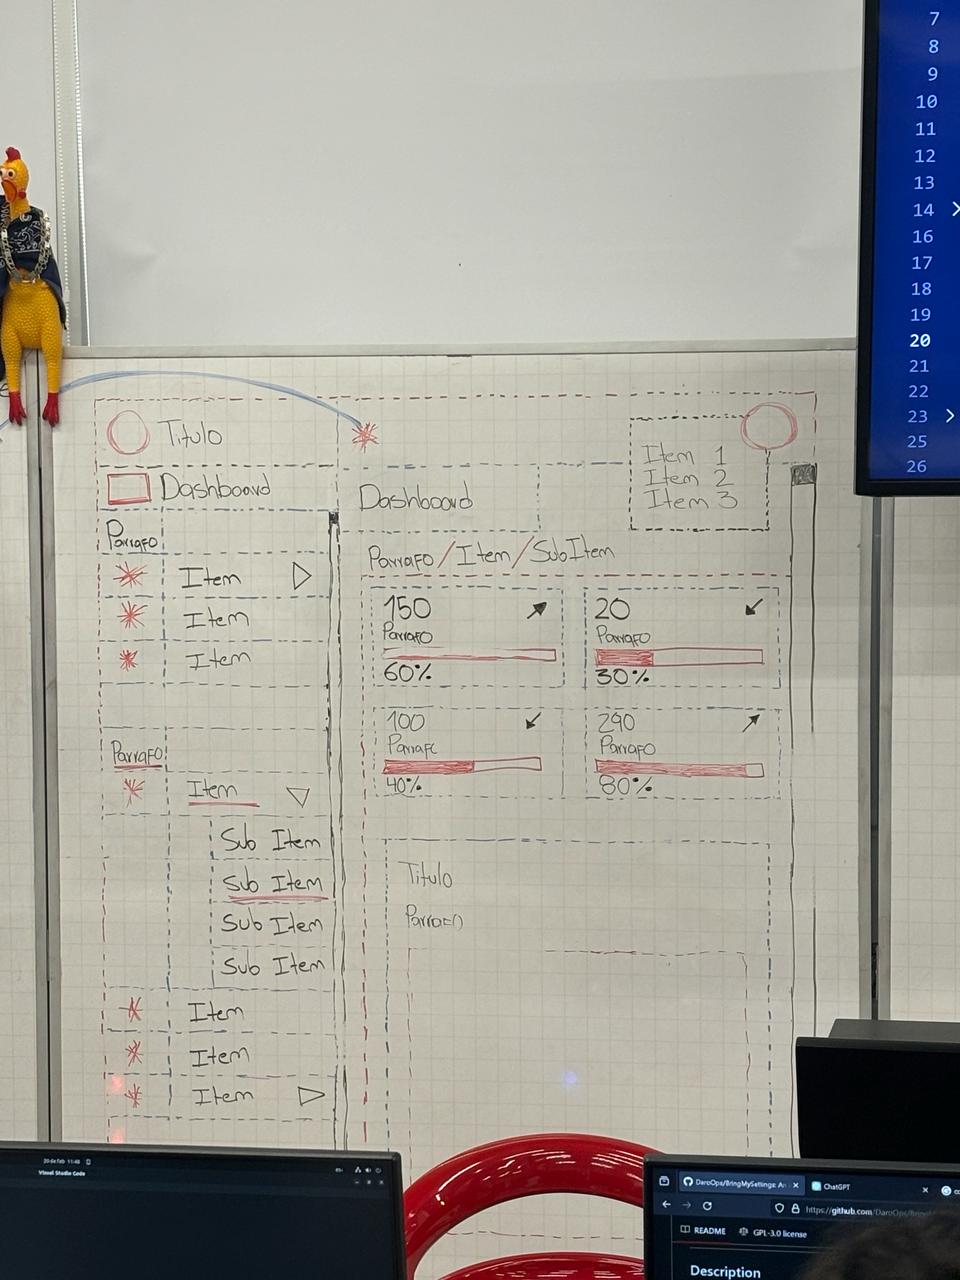 7
8
9
10
11
12
13
14
16
17
18
19
20
21
22
23
25
26
Titulo
Dashboard
Parrafo
Item
Item
Item
Parrafo
Item
Sub Item
Sub Item
Sub Item
Sub Item
Item
Item
Item
Item 1
Item 2
Item 3
Dashboard
Parrafo/Item/SubItem
150
Parrafo
60%
20
Parrafo
30%
100
Parrafo
40%
290
Parrafo
80%
Titulo
Parrafo
20 de feb 11:48
Visual Studio Code
DaroOps/BringMySettings: A
ChatGPT
https://github.com/DaroOps/Bring
README
GPL-3.0 license
Description